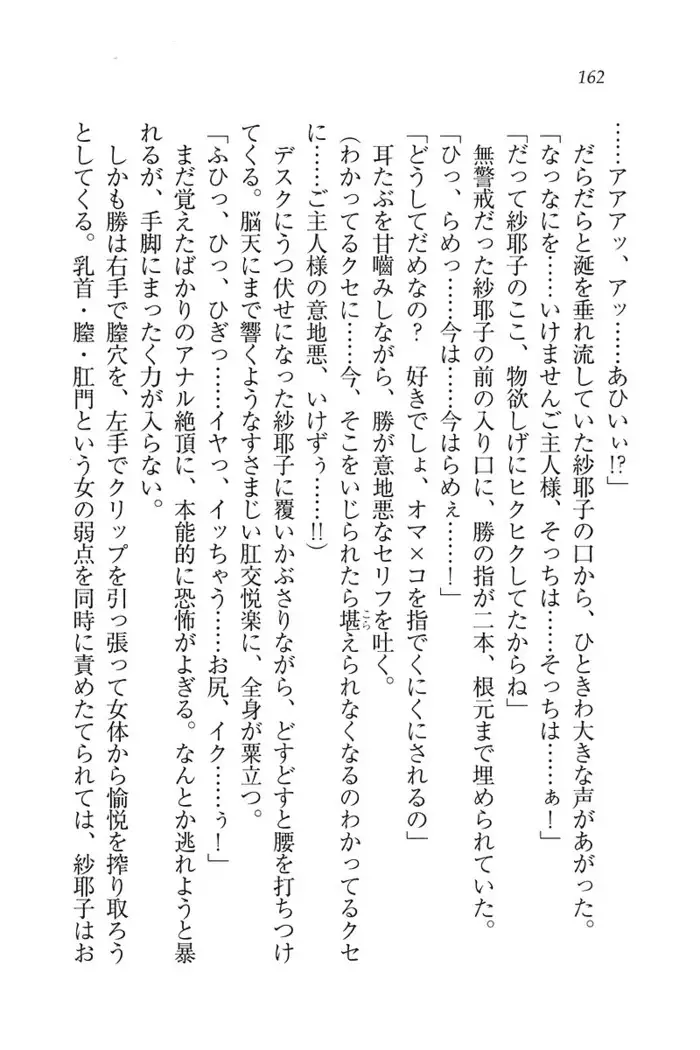 162
……アアアッ、アッ……あひいぃ!?」
だらだらと涎を垂れ流していた紗耶子の口から、ひときわ大きな声があがった。
「なっなにを……いけませんご主人様、そっちは……そっちは……ぁ！」
「だって紗耶子のここ、物欲しげにヒクヒクしてたからね」
無警戒だった紗耶子の前の入り口に、勝の指が二本、根元まで埋められていた。
「ひっ、らめっ……今は……今はらめぇ……！」
「どうしてだめなの？　好きでしょ、オマ×コを指でくにくにされるの」
耳たぶを甘噛みしながら、勝が意地悪なセリフを吐く。
（わかってるクセに……今、そこをいじられたら堪えられなくなるのわかってるクセ
に……ご主人様の意地悪、いけずぅ……!!）
デスクにうつ伏せになった紗耶子に覆いかぶさりながら、どすどすと腰を打ちつけ
てくる。脳天にまで響くようなすさまじい肛交悦楽に、全身が粟立つ。
「ふひっ、ひっ、ひぎっ……イヤっ、イッちゃう……お尻、イク……ぅ！」
まだ覚えたばかりのアナル絶頂に、本能的に恐怖がよぎる。なんとか逃れようと暴
れるが、手脚にまったく力が入らない。
しかも勝は右手で膣穴を、左手でクリップを引っ張って女体から愉悦を搾り取ろう
としてくる。乳首・膣・肛門という女の弱点を同時に責めたてられては、紗耶子はお